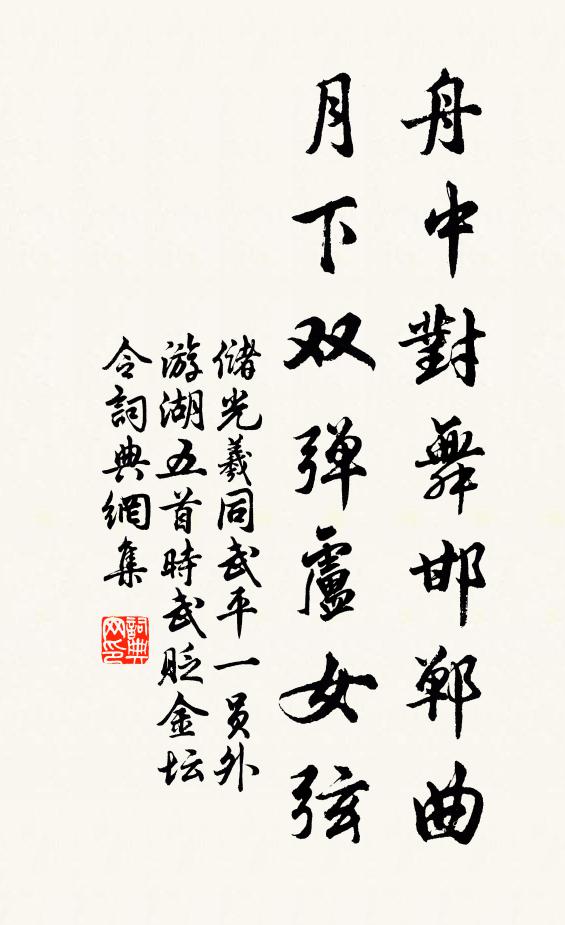 舟中對舞邯鄲曲
月下双弹盧女弦
储光羲同武平一员外
游湖五首時武贬金坛
令詞典網集
詞典
网印